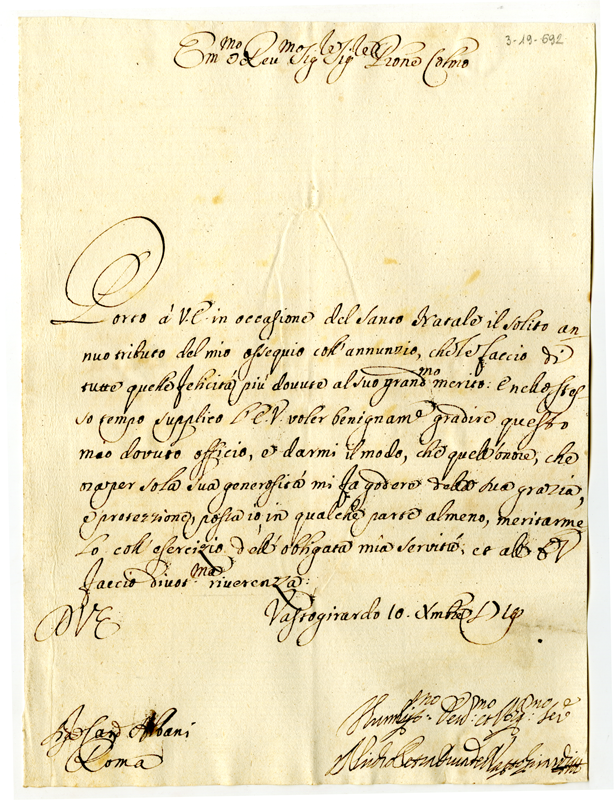 3-19-692
Em.mo e Rev.mo Sig.re Sig.re e Prone Col.mo
Porto á V.E. in occasione del Santo Natale il solito an-
nuo tributo del mio ossequio coll'annunzio, che le faccio di
tutte quelle felicitá piú dovute al suo grand.mo merito: E nello stes
so tempo supplico l'E.V. voler benignam.e gradire questo
mio dovuto officio, e darmi il modo, che quell'onore, che
ora per sola sua generositá mi fa godere della sua grazia,
e protezzione, possa io in qualche parte almeno, meritarme
lo coll'esercizio dell'obligata mia servitú, et all'E.V.
faccio divot.ma riverenza:
Vastogirardo 10. Xmbre
D V E
Card Albani
Roma
Humiliss.mo Dev.mo et Obl.mo Ser.e